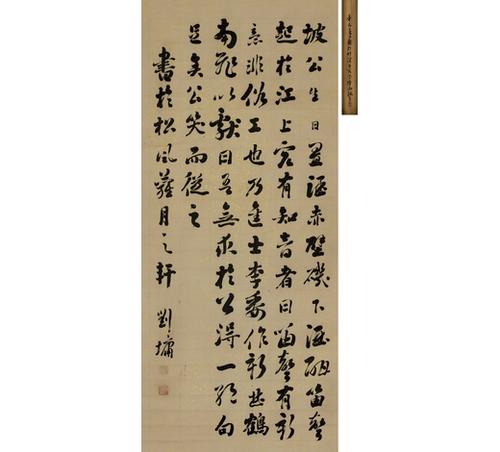 坡公生日置酒赤壁磯下酒酣笛聲
起於江上客有知音者曰笛聲有新
意非俗工也乃進士李委作新曲鶴
南飛以獻曰吾無求於公得一絕句
足矣公笑而從之
書於松風蘿月之軒 劉墉